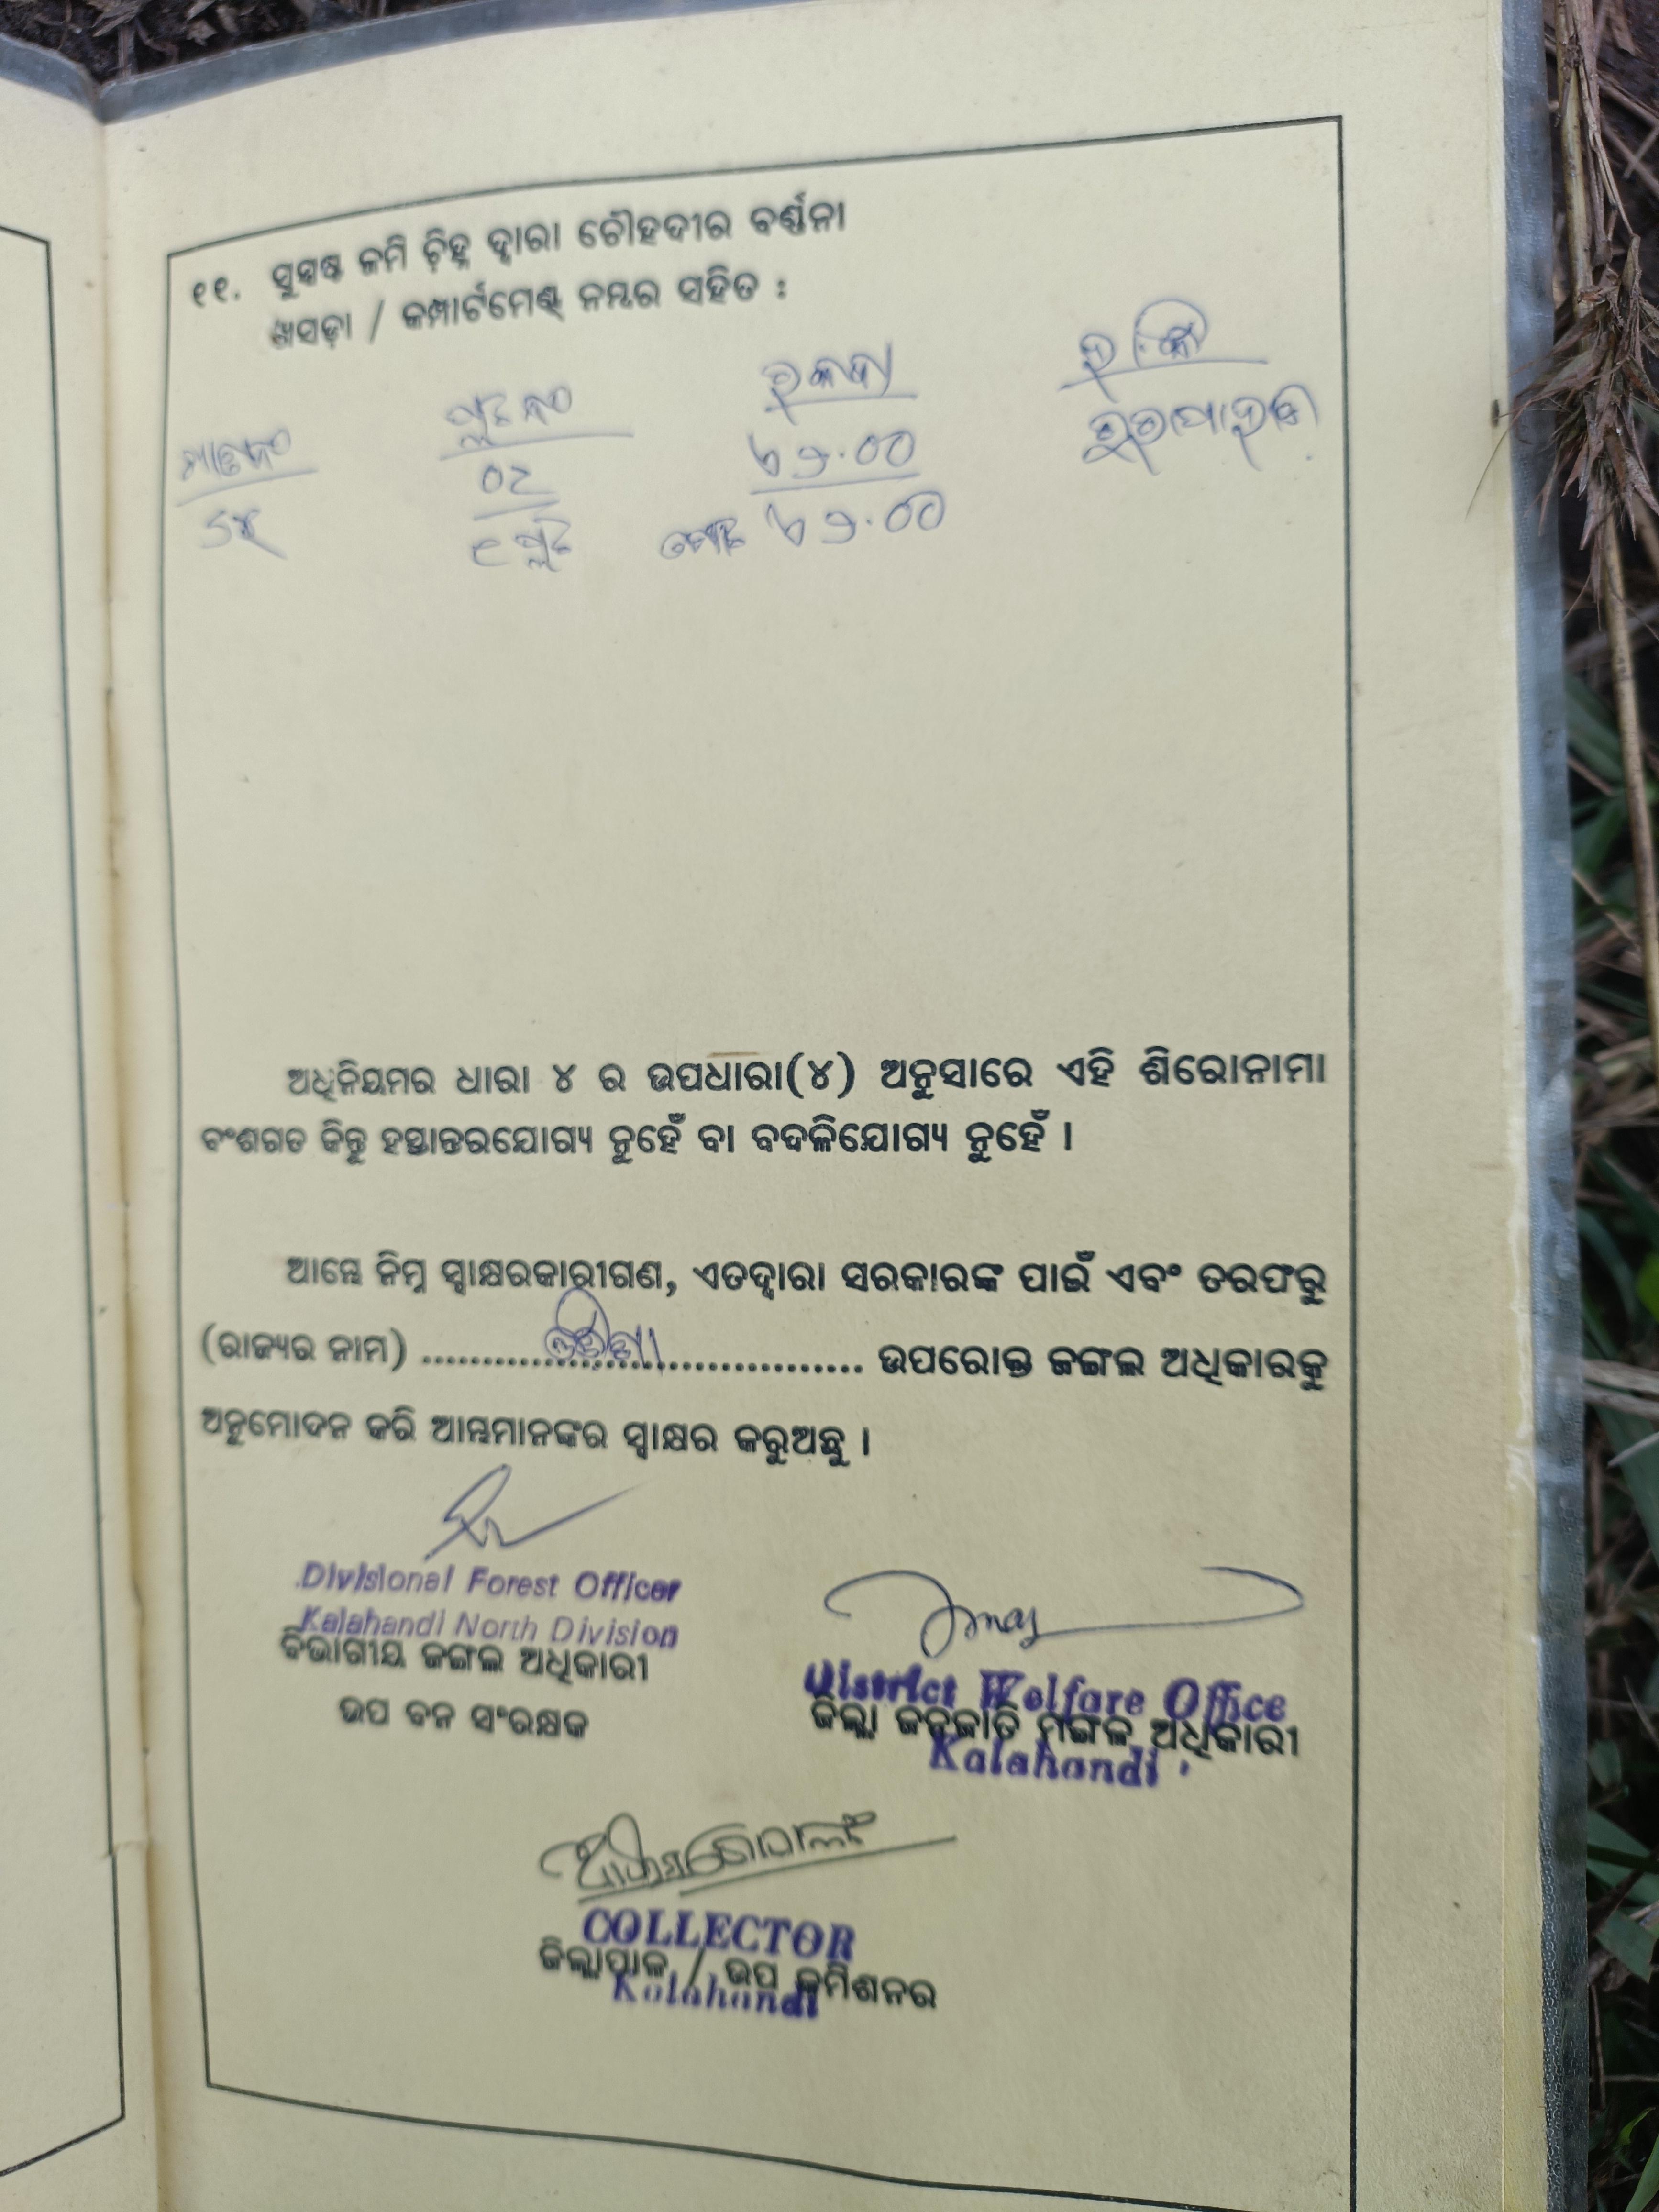 ୧୧. ସୁସ୍ପଷ୍ଟ ଜମି ଚିହ୍ନ ଦ୍ୱାରା ଚୌହଦୀର ବର୍ଣ୍ଣନା
ଖସଡ଼ା / କମ୍ପାର୍ଟମେଣ୍ଟ ନମ୍ବର ସହିତ :
ପ୍ଲଟ ନଂ ରକବା
ମୋଟ
ଅଧିନିୟମର ଧାରା ୪ ର ଉପଧାରା(୪) ଅନୁସାରେ ଏହି ଶିରୋନାମା
ବଂଶଗତ କିନ୍ତୁ ହସ୍ତାନ୍ତରଯୋଗ୍ୟ ନୁହେଁ ବା ବଦଳିଯୋଗ୍ୟ ନୁହେଁ ।
ଆମ୍ଭେ ନିମ୍ନ ସ୍ୱାକ୍ଷରକାରୀଗଣ, ଏତଦ୍ୱାରା ସରକାରଙ୍କ ପାଇଁ ଏବଂ ତରଫରୁ
(ରାଜ୍ୟର ନାମ) ଓଡ଼ିଶା ଉପରୋକ୍ତ ଜଙ୍ଗଲ ଅଧିକାରକୁ
ଅନୁମୋଦନ କରି ଆମ୍ଭମାନଙ୍କର ସ୍ୱାକ୍ଷର କରୁଅଛୁ ।
Divisional Forest Officer
Kalahandi North Division
ବିଭାଗୀୟ ଜଙ୍ଗଲ ଅଧିକାରୀ
ଉପ ବନ ସଂରକ୍ଷକ
District Welfare Office
ଜିଲ୍ଲା ଜନଜାତି ମଙ୍ଗଳ ଅଧିକାରୀ
Kalahandi
COLLECTOR
ଜିଲ୍ଲାପାଳ / ଉପ କମିଶନର
Kalahandi